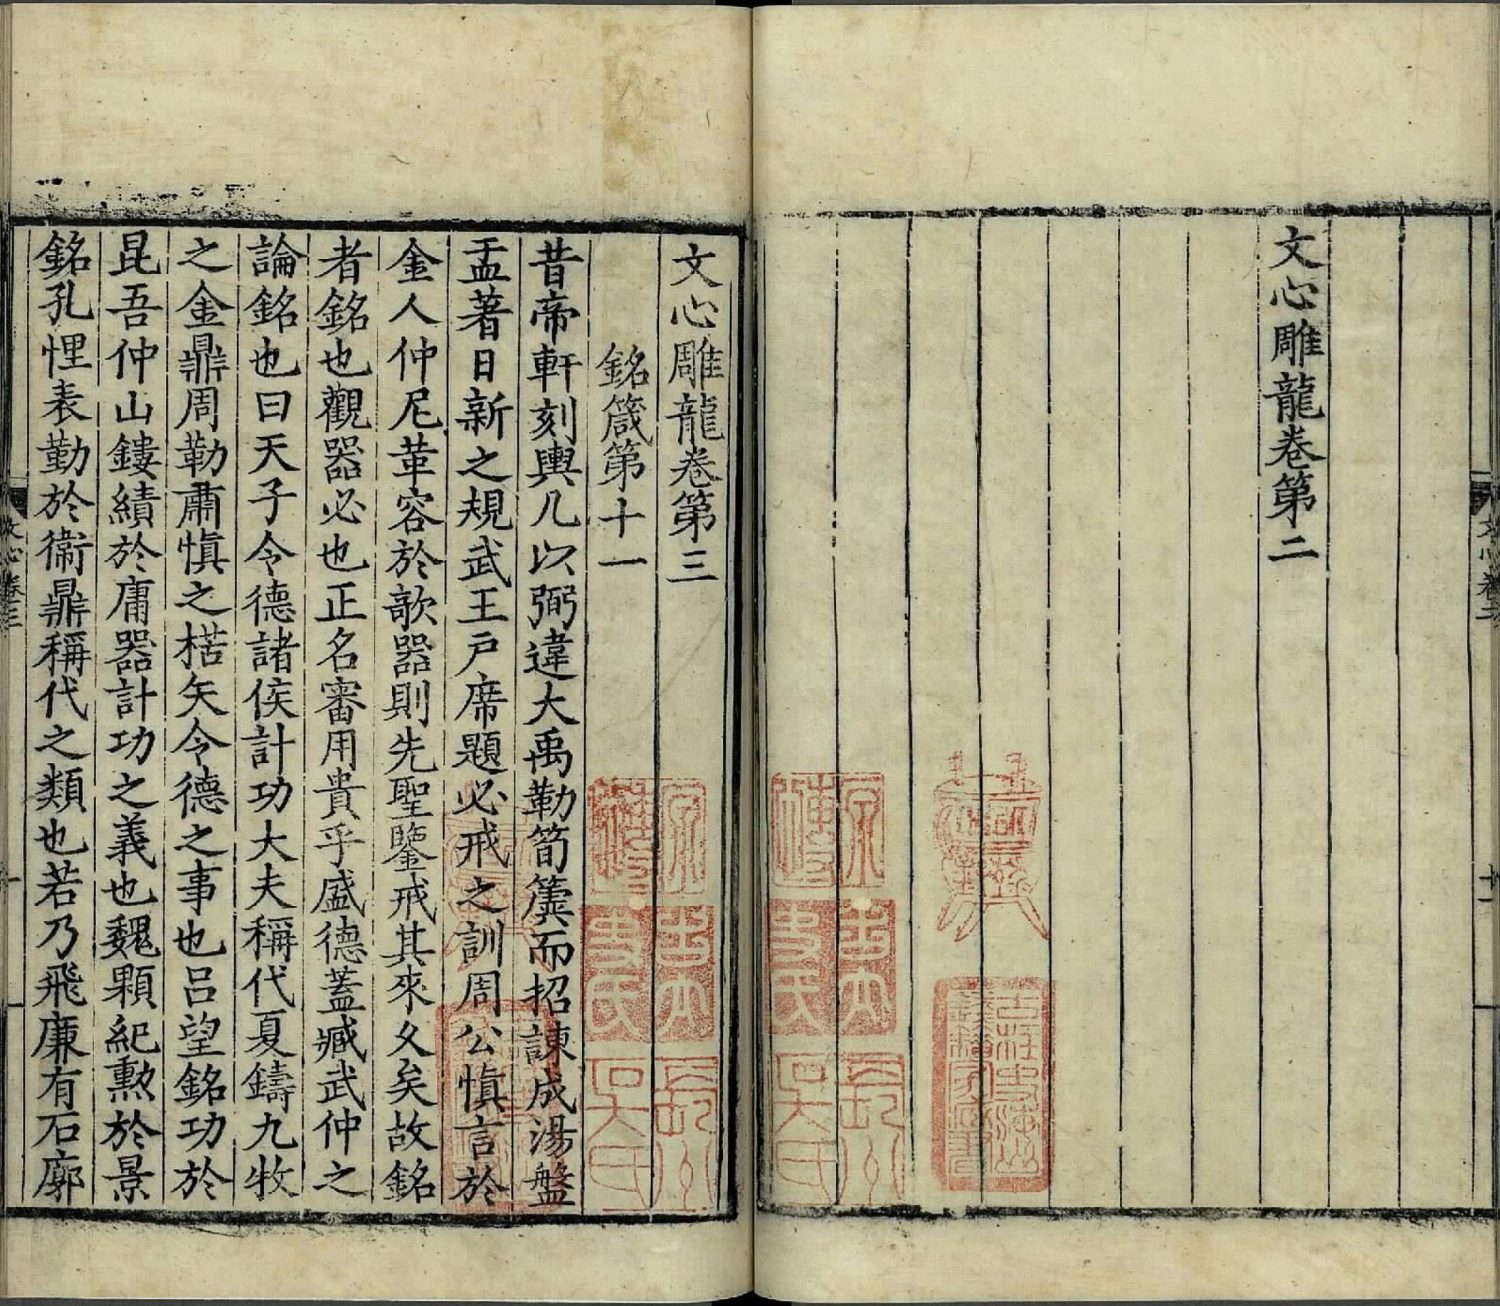 文心雕龍卷第二
文心雕龍卷第三
銘箴第十一
昔帝軒刻輿几以弼違大禹勒筍簴而招諫成湯盤
盂著日新之規武王戶席題必戒之訓周公慎言於
金人仲尼革容於欹器則先聖鑒戒其來久矣故銘
者銘也觀器必也正名審用貴乎盛德蓋臧武仲之
論銘也曰天子令德諸侯計功大夫稱代夏鑄九牧
之金鼎周勒肅慎之楛矢令德之事也呂望銘功於
昆吾仲山鏤績於庸器計功之義也魏顆紀勲於景
銘孔悝表勤於衛鼎稱代之類也若乃飛廉有石廓